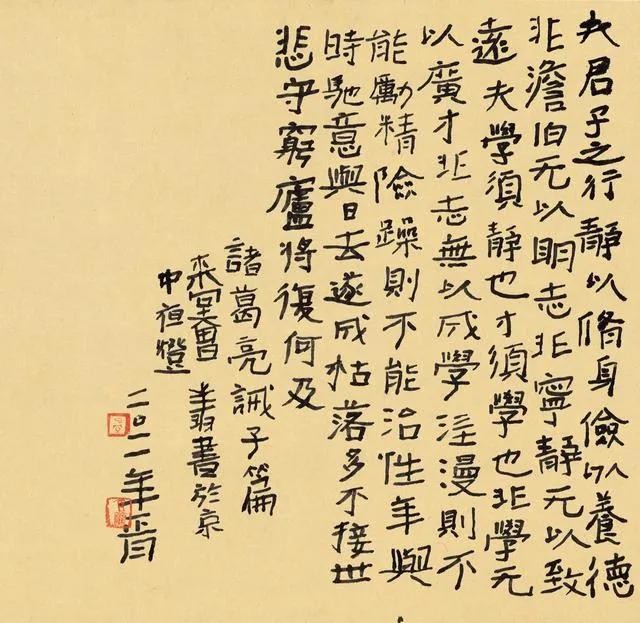 夫君子之行靜以脩身儉以養德
非澹泊无以明志非寧靜无以致
遠夫學須靜也才須學也非學无
以廣才非志無以成學淫漫則不
能勵精險躁則不能治性年與
時馳意與日去遂成枯落多不接世
悲守窮廬將復何及
諸葛亮誡子篇
書於京
二〇一一年